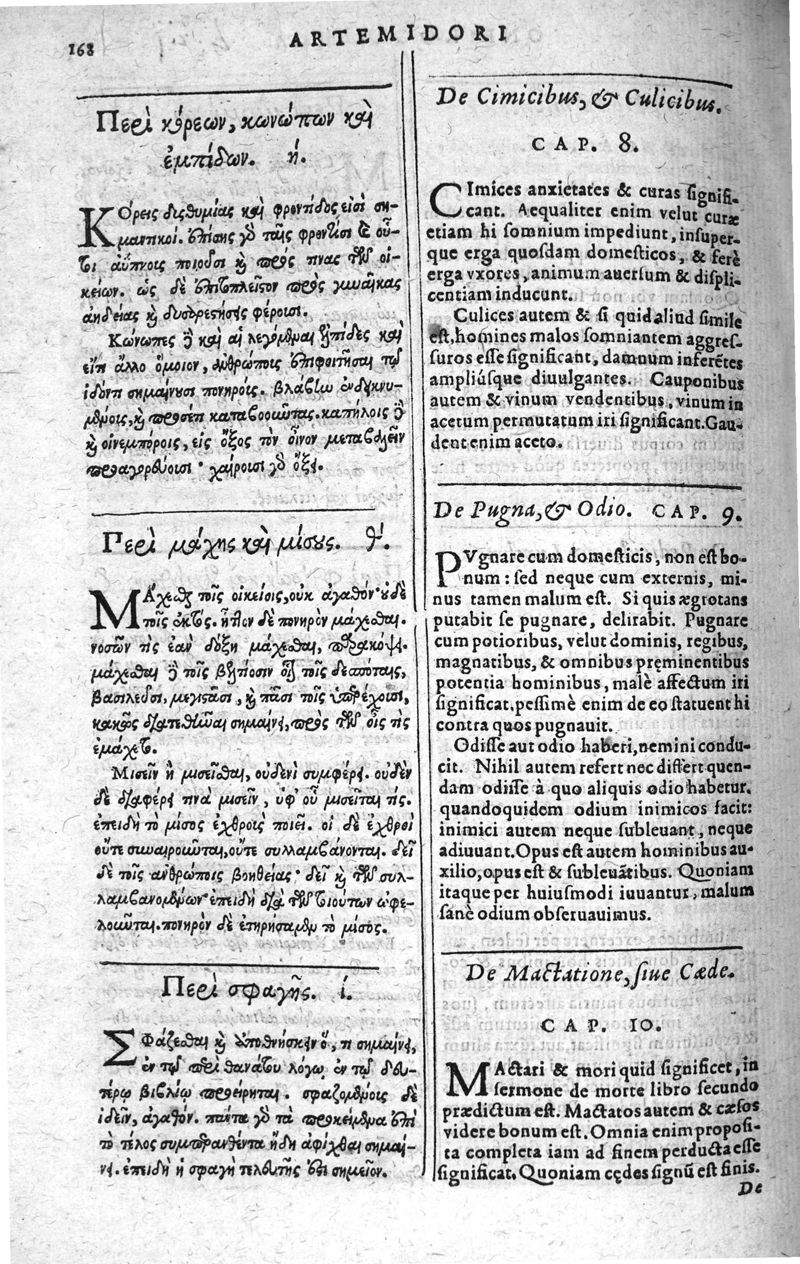 168
ARTEMIDORI
Περὶ κόρεων, κωνώπων καὶ
ἐμπίδων. ή.
ΚΌρεις δυσθυμίας καὶ φροντίδος εἰσὶ ση-
μαντικοί. ἐπίσης γὸ ταῖς φροντίσι & οὗ-
τοι ἀΰπνοις ποιοῦσι καὶ πρός τινας τῶν οἰ-
κείων. ὡς δὲ ἐπιτοπλεῖστον πρὸς γυναῖκας
ἀηδείας καὶ δυσαρεστήσεις φέρουσι.
Κώνωπες δὲ καὶ αἱ λεγόμεναι ἐμπίδες καὶ
εἴτι ἄλλο ὅμοιον, ἀνθρώποις ἐπιφοιτῆσαι τῷ
ἰδόντι σημαίνουσι πονηροῖς. βλάβην ἐνδεικνυ-
μένοις, καὶ προσέτι καταβοῶντας. καπήλοις δὲ
καὶ οἰνεμπόροις, εἰς ὄξος τὸν οἶνον μεταβαλεῖν
προαγορεύουσι· χαίρουσι γὸ ὄξει.
Περὶ μάχης καὶ μίσους. θʹ.
ΜΆχεσθαι τοῖς οἰκείοις, οὐκ ἀγαθὸν· οὐδὲ
τοῖς ἐκτός. ἧττον δὲ πονηρὸν μάχεσθαι.
νοσῶν τὶς ἐὰν δόξῃ μάχεσθαι, παρακόψει.
μάχεσθαι δὲ τοῖς βελτίοσιν οἷον τοῖς δεσπόταις,
βασιλεῦσι, μεγιστᾶσι, καὶ πᾶσι τοῖς ὑπερέχουσι,
κακῶς διατεθῆναι σημαίνει, πρὸς τῶν οἷς τὶς
ἐμάχετο.
Μισεῖν ἢ μισεῖσθαι, οὐδενὶ συμφέρει. οὐδὲν
δὲ διαφέρει τινὰ μισεῖν, ὑφ' οὗ μισεῖται τίς.
ἐπειδὴ τὸ μῖσος ἐχθροὺς ποιεῖ. οἱ δὲ ἐχθροὶ
οὔτε συναιροῦνται, οὔτε συλλαμβάνονται. δεῖ
δὲ τοῖς ἀνθρώποις βοηθείας· δεῖ καὶ τῶν συλ-
λαμβανομένων· ἐπειδὴ διὰ τῶν τοιούτων ὠφε-
λοῦνται. πονηρὸν δὲ ἐτηρήσαμεν τὸ μῖσος.
Περὶ σφαγῆς. ί.
ΣΦάζεσθαι καὶ ἀποθνήσκειν ὅ, τι σημαίνει,
ἐν τῷ περὶ θανάτου λόγῳ ἐν τῷ δευ-
τέρῳ βιβλίῳ προείρηται. σφαζομένοις δὲ
ἰδεῖν, ἀγαθόν. πάντα γὸ τὰ προκείμενα ἐπὶ
τὸ τέλος συμπερανθέντα ἤδη ἀφίχθαι σημαί-
νει. ἐπειδὴ ἡ σφαγὴ τελευτῆς ἐστι σημεῖον.
De Cimicibus, & Culicibus.
CAP. 8.
CImices anxietates & curas signifi-
cant. Aequaliter enim velut curæ
etiam hi somnium impediunt, insuper-
que erga quosdam domesticos, & ferè
erga vxores, animum auersum & displi-
centiam inducunt.
Culices autem & si quid aliud simile
est, homines malos somniantem aggres-
suros esse significant, damnum inferētes
ampliúsque diuulgantes. Cauponibus
autem & vinum vendentibus, vinum in
acetum permutatum iri significant. Gau-
dent enim aceto.
De Pugna, & Odio. CAP. 9.
PVgnare cum domesticis, non est bo-
num: sed neque cum externis, mi-
nus tamen malum est. Si quis ægrotans
putabit se pugnare, delirabit. Pugnare
cum potioribus, velut dominis, regibus,
magnatibus, & omnibus pręminentibus
potentia hominibus, malè affectum iri
significat. pessimè enim de eo statuent hi
contra quos pugnauit.
Odisse aut odio haberi, nemini condu-
cit. Nihil autem refert nec differt quen-
dam odisse à quo aliquis odio habetur.
quandoquidem odium inimicos facit:
inimici autem neque subleuant, neque
adiuuant. Opus est autem hominibus au-
xilio, opus est & subleuātibus. Quoniam
itaque per huiusmodi iuuantur, malum
sanè odium obseruauimus.
De Mactatione, siue Cæde.
CAP. 10.
MActari & mori quid significet, in
sermone de morte libro secundo
prædictum est. Mactatos autem & cæsos
videre bonum est. Omnia enim proposi-
ta completa iam ad finem perducta esse
significat. Quoniam cędes signū est finis.
De